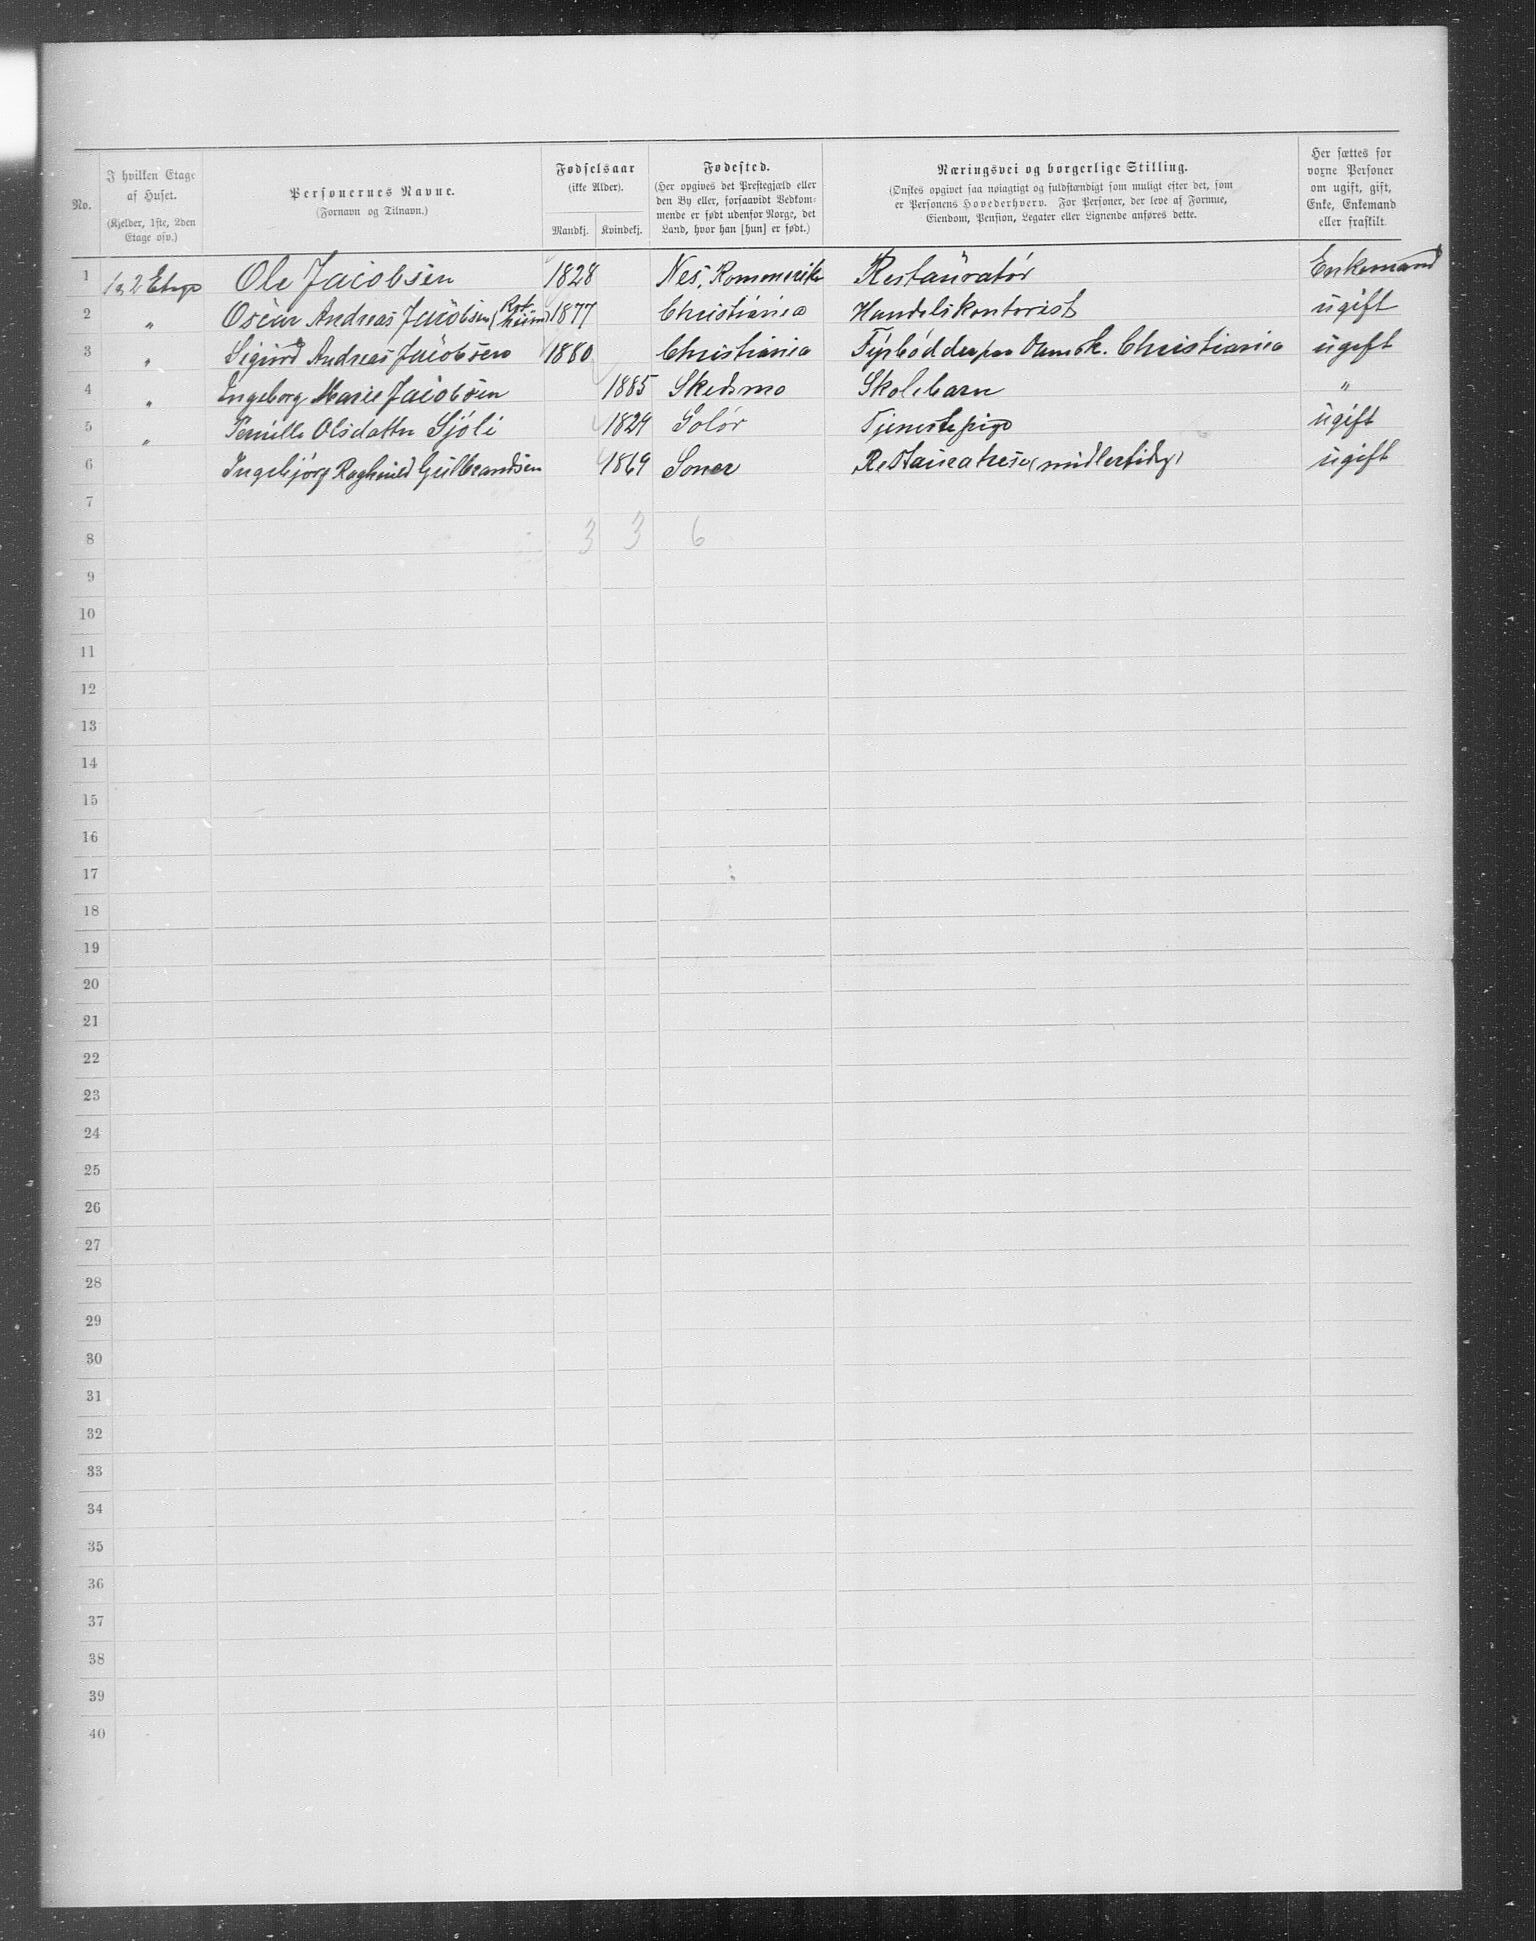 No.
I hvilken Etage af Huset.
(Kjelder, 1ste, 2den Etage osv.)
Personernes Navne.
(Fornavn og Tilnavn.)
Fødselsaar
(ikke Alder).
Mandkj. Kvindekj.
Fødested.
(Her opgives det Prestegjæld eller
den By eller, forsaavidt Vedkom-
mende er født udenfor Norge, det
Land, hvor han [hun] er født.)
Næringsvei og borgerlige Stilling.
(Ønskes opgivet saa nøiagtigt og fuldstændigt som muligt efter det, som
er Personens Hovederhverv. For Personer, der leve af Formue,
Eiendom, Pension, Legater eller Lignende anføres dette.
Her sættes for
voxne Personer
om ugift, gift,
Enke, Enkemand
eller fraskilt.
1 2 Etage Ole Jacobsen 1828 Nes, Rommerike Restauratør Enkemand
2 " Oscar Andreas Jacobsen (Rot-heim) 1877 Christiania Handelskontorist ugift
3 " Sigurd Andreas Jacobsen 1880 Christiania Fyrbødder paa Damsk. Christiania ugift
4 " Ingeborg Marie Jacobsen 1885 Skedsmo Skolebarn "
5 " Pernille Olsdatter Sjøli 1829 Solør Tjenestepige ugift
6 Ingebjørg Raghnild Gulbrandsen 1869 Soner Restauratrise (midlertidig) ugift
7
8 3 3 6
9
10
11
12
13
14
15
16
17
18
19
20
21
22
23
24
25
26
27
28
29
30
31
32
33
34
35
36
37
38
39
40